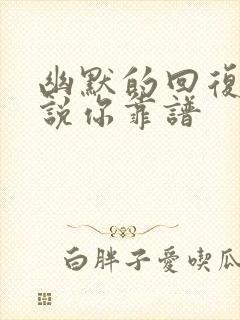 幽默的回復
說你靠譜
白胖子愛喫瓜